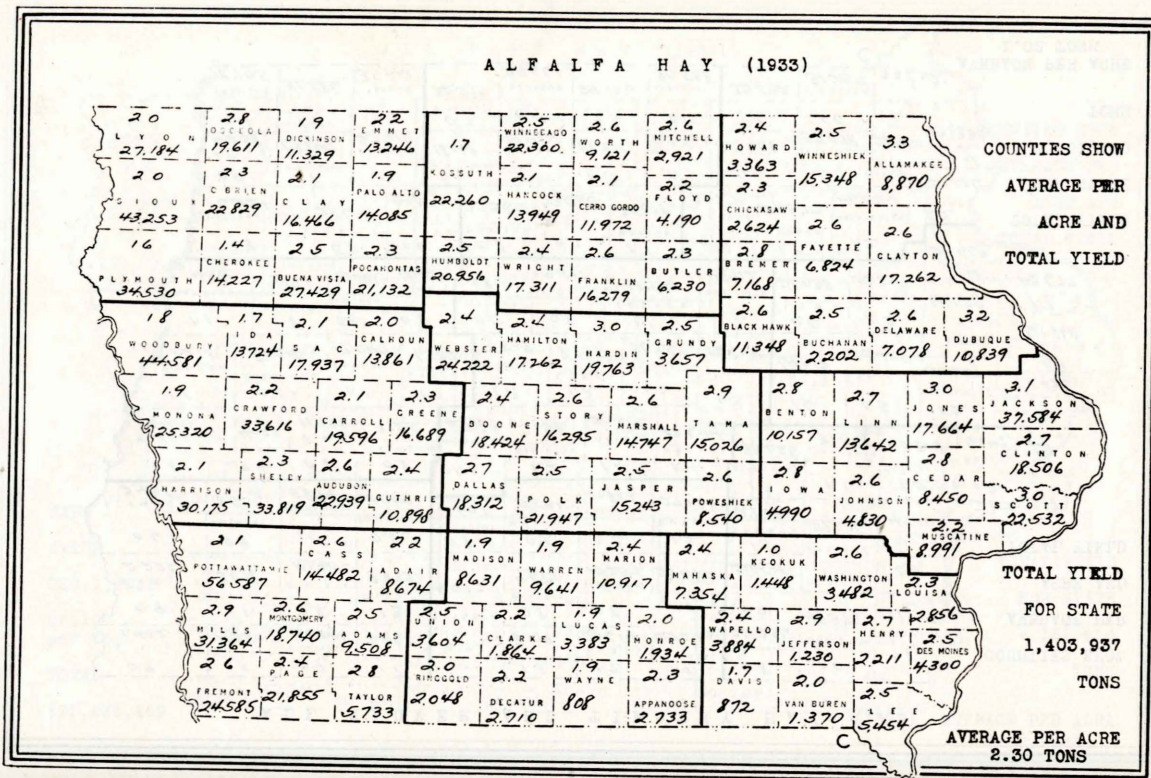 ALFALFA HAY (1933)
COUNTIES SHOW
AVERAGE PER
ACRE AND
TOTAL YIELD
2.0
LYON
27.184
2.8
OSCEOLA
19.611
1.9
DICKINSON
11.329
2.2
EMMET
13.246
1.7
KOSSUTH
22.260
2.5
WINNEBAGO
22.360
2.6
WORTH
9.121
2.6
MITCHELL
2,921
2.4
HOWARD
3.363
2.5
WINNESHIEK
15.348
3.3
ALLAMAKEE
8,870
2.0
SIOUX
43.253
2.3
O'BRIEN
22.829
2.1
CLAY
16.466
1.9
PALO ALTO
14.085
2.1
HANCOCK
13.949
2.1
CERRO GORDO
11.972
2.2
FLOYD
4.190
2.3
CHICKASAW
2,624
2.6
FAYETTE
6.824
2.6
CLAYTON
17.262
1.6
PLYMOUTH
34.530
1.4
CHEROKEE
14.227
2.5
BUENA VISTA
27.429
2.3
POCAHONTAS
21,132
2.5
HUMBOLDT
20.956
2.4
WRIGHT
17.311
2.6
FRANKLIN
16.279
2.3
BUTLER
6.230
2.8
BREMER
7.168
1.8
WOODBURY
44.581
1.7
IDA
13724
2.1
SAC
17.937
2.0
CALHOUN
13.861
2.4
WEBSTER
24.222
2.4
HAMILTON
17.262
3.0
HARDIN
19.763
2.5
GRUNDY
3.657
2.6
BLACK HAWK
11.348
2.5
BUCHANAN
2,202
2.6
DELAWARE
7.078
3.2
DUBUQUE
10,839
1.9
MONONA
25320
2.2
CRAWFORD
33,616
2.1
CARROLL
19.596
2.3
GREENE
16.689
2.4
BOONE
18.424
2.6
STORY
16.295
2.6
MARSHALL
14.747
2.9
TAMA
15.026
2.8
BENTON
10,157
2.7
LINN
13.642
3.0
JONES
17.664
3.1
JACKSON
37.584
2.7
CLINTON
18.506
2.1
HARRISON
30.175
2.3
SHELBY
33.819
2.6
AUDUBON
22.939
2.4
GUTHRIE
10.898
2.7
DALLAS
18.312
2.5
POLK
21.947
2.5
JASPER
15.243
2.6
POWESHIEK
8.540
2.8
IOWA
4.990
2.6
JOHNSON
4.830
2.8
CEDAR
8.450
3.0
SCOTT
22.532
2.2
MUSCATINE
8.991
2.1
POTTAWATTAMIE
56.587
2.6
CASS
14.482
2.2
ADAIR
8.674
1.9
MADISON
8.631
1.9
WARREN
9.641
2.4
MARION
10.917
2.4
MAHASKA
7.354
1.0
KEOKUK
1.448
2.6
WASHINGTON
3.482
2.3
LOUISA
2.856
2.9
MILLS
31.364
2.6
MONTGOMERY
18.740
2.5
ADAMS
9.508
2.5
UNION
3.604
2.2
CLARKE
1.864
1.9
LUCAS
3.383
2.0
MONROE
1.934
2.4
WAPELLO
3.884
2.9
JEFFERSON
1.230
2.7
HENRY
2.211
2.5
DES MOINES
4.300
2.6
FREMONT
24.585
2.4
PAGE
21.855
2.8
TAYLOR
5.733
2.0
RINGGOLD
2.048
2.2
DECATUR
2.710
1.9
WAYNE
808
2.3
APPANOOSE
2.733
1.7
DAVIS
872
2.0
VAN BUREN
1.370
2.5
LEE
5.454
TOTAL YIELD
FOR STATE
1,403,937
TONS
AVERAGE PER ACRE
2.30 TONS